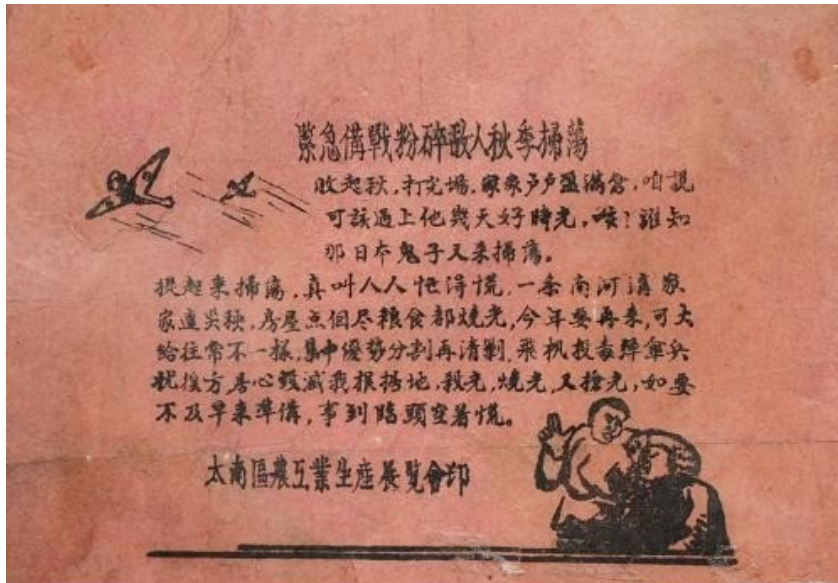 緊急備戰粉碎敵人秋季掃蕩
收起秋,打完場,家家戶戶盈滿倉,咱說
可該過上他幾天好時光,咳?誰知
那日本鬼子又来掃蕩。
提起来掃蕩,真叫人人怛得慌,一条南河溝家
家遭災殃,房屋点個尽粮食都燒光,今年要再来,可大
給往常不一樣,集中優势分割再清剿,飛机投毒彈傘兵
扰後方居心毀滅我根據地,殺光,燒光,又搶光,如要
不及早来準備,事到臨頭空着慌。
太南區農工業生産展覽會印